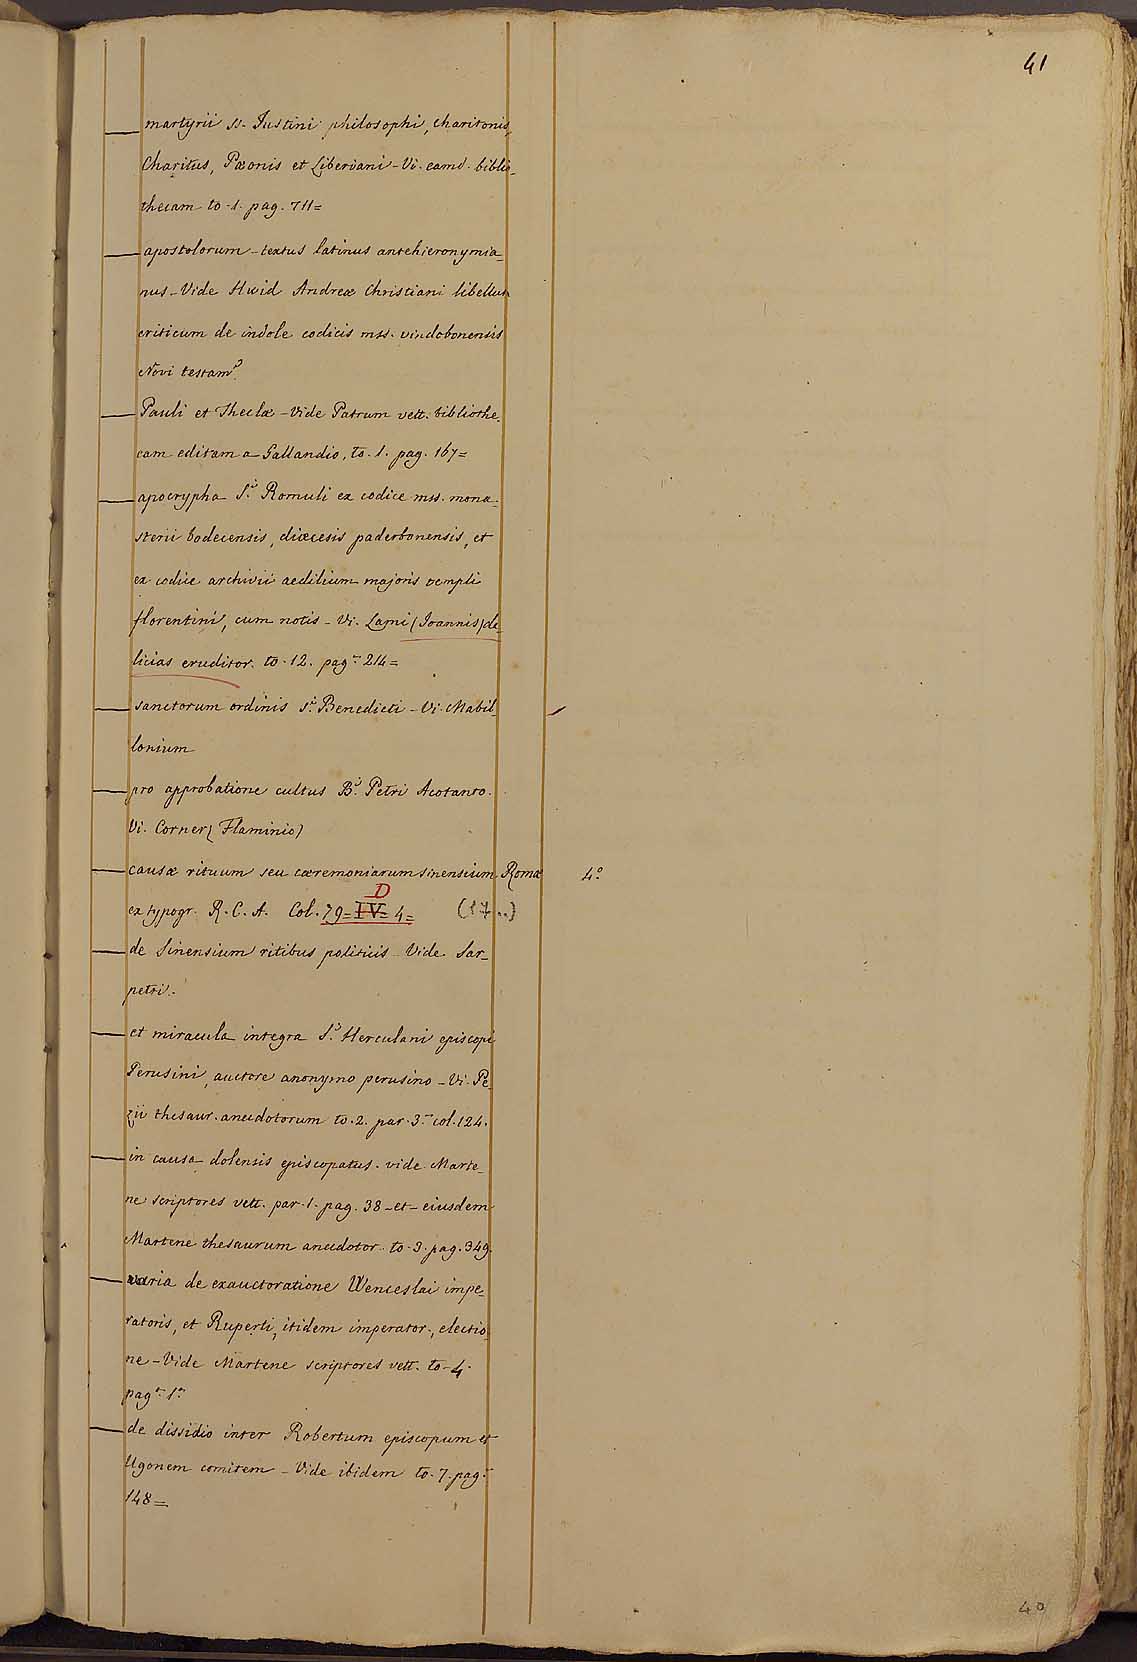 41
— martyrii ss. Justini philosophi, Charitonis,
Charitus, Pæonis et Liberiani - Vi. eamd. biblio-
thecam to. 1. pag. 711=
— apostolorum - textus latinus antehieronymia=
nus - Vide Hwid Andreæ Christiani libellum
criticum de indole codicis mss. vindobonensis
Novi testamti.
— Pauli et Theclæ - Vide Patrum vett. bibliothe-
cam editam a Gallandio, to. 1. pag. 167=
— apocrypha S.i Romuli ex codice mss. mona-
sterii bodecensis, diœcesis paderbonensis, et
ex codice archivii aedilium majoris templi
florentini, cum notis - Vi. Lami (Joannis) de-
licias eruditor. to. 12. pag. 214=
— sanctorum ordinis S.i Benedicti - Vi. Mabil-
lonium
— pro approbatione cultus B.i Petri Acotanto.
Vi. Corner (Flaminio)
— causæ rituum seu cæremoniarum sinensium Romæ 4.o
D
ex typogr. R. C. A. Col. 79=IV=4= (17..)
— de Sinensium ritibus politicis - Vide Sar-
petri.
— et miracula integra S.i Herculani episcopi
Perusini, auctore anonymo perusino - Vi. Pe-
zii thesaur. anecdotorum to. 2. par. 3. col. 124.
— in causa dolensis episcopatus. vide Marte-
ne scriptores vett. par. 1. pag. 38 - et - eiusdem
Martene thesaurum anecdotor. to. 3. pag. 349.
— varia de exauctoratione Wenceslai impe-
ratoris, et Ruperti, itidem imperator., electio-
ne - Vide Martene scriptores vett. to. 4.
pag. 1.
— de dissidio inter Robertum episcopum et
Ugonem comitem - Vide ibidem to. 7. pag.
148=
40